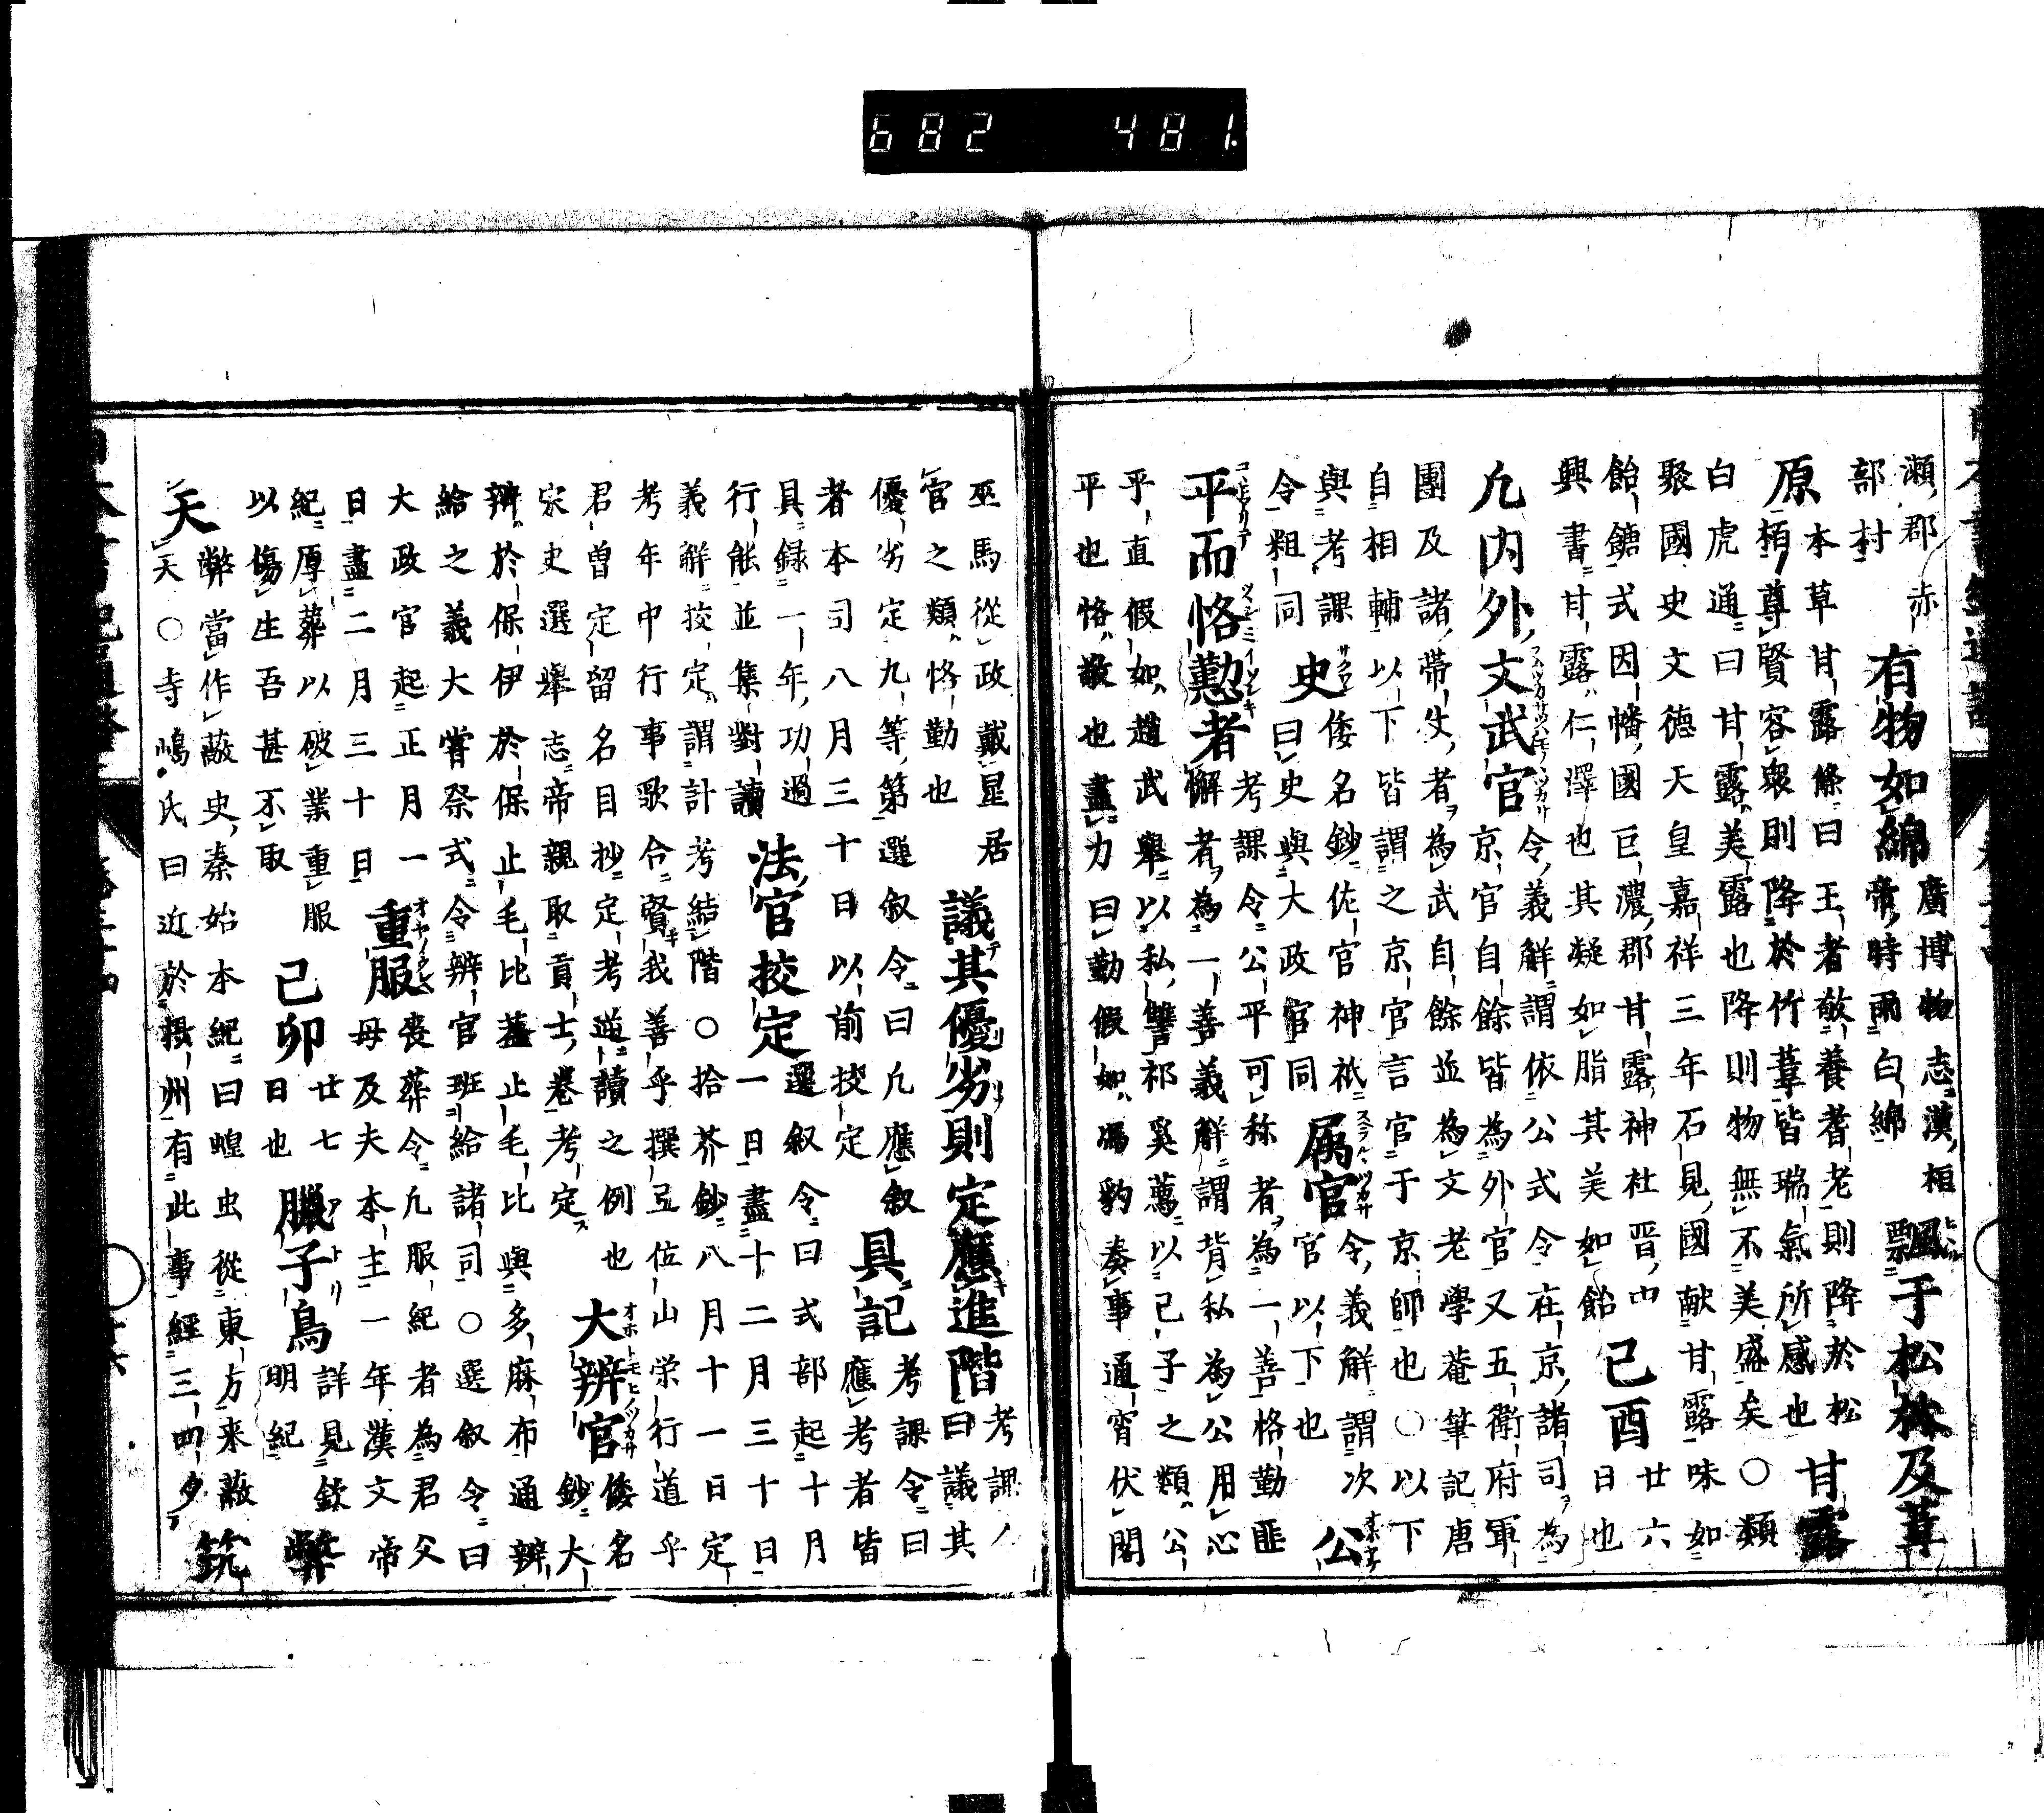 瀬郡赤
部村
有物如綿
廣博物志漢桓
帝時雨白綿
飄于松林及葦
原
本草甘露條曰王者敬養耆老則降於松
栢尊賢容衆則降於竹葦皆瑞氣所感也
甘露
白虎通曰甘露美露也降則物無不美盛矣○類
聚國史文德天皇嘉祥三年石見國献甘露味如
飴餹式因幡國巨濃郡甘露神社晋中
興書甘露仁澤也其凝如脂其美如飴
己酉
廿六
日也
凡内外文武官
令義解謂依公式令在京諸司為
京官自餘皆為外官又五衛府軍
團及諸帶仗者為武自餘並為文老學菴筆記唐
自相輔以下皆謂之京官言官于京師也○以下
與考課
令粗同
史
倭名鈔佐官神祇
曰史與大政官同
属官
令義解謂次
官以下也
公
平而恪懃者
考課令公平可称者為一善恪勤匪
懈者為一善義解謂背私為公用心
平直假如趙武舉以私讐祁奚薦以己子之類公
平也恪敬也盡力曰勤假如馮豹奏事通宵伏閤
巫馬從政戴星居
官之類恪勤也
議其優劣則定應進階
考課
曰議其
優劣定九等第選叙令曰凡應叙
者本司八月三十日以前挍定
具記
考課令曰
應考者皆
具録一年功過
行能並集對讀
法官挍定
選叙令曰式部起十月
一日盡十二月三十日
義解挍定謂計考結階○拾芥鈔八月十一日定
考年中行事歌合賢我善乎撰弖位山栄行道乎
君曽定留名目抄定考道讀之例也
宋史選舉志帝親取貢士卷考定
大辨官
倭名
鈔大
辨於保伊於保止毛比蓋止毛比與多麻布通辨
給之義大嘗祭式令辨官班給諸司○選叙令曰
大政官起正月一
日盡二月三十日
重服
喪葬令凡服紀者為君父
母及夫本主一年漢文帝
紀厚葬以破業重服
以傷生吾甚不取
己卯
廿七
日也
臘子鳥
詳見欽
明紀
弊
天
弊當作蔽史秦始本紀曰蝗虫從東方来蔽
天○寺嶋氏曰近於摂州有此事経三四夕
筑